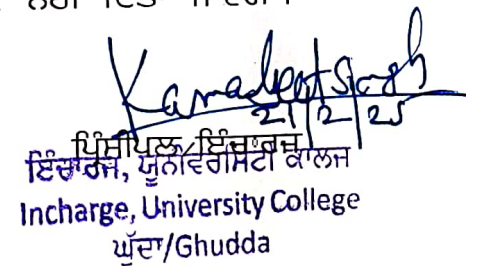 Singh
21/2/25
ਪ੍ਰਿੰਸੀਪਲ/ਇੰਚਾਰਜ
ਇੰਚਾਰਜ, ਯੂਨੀਵਰਸਿਟੀ ਕਾਲਜ
Incharge, University College
ਘੁੱਦਾ/Ghudda